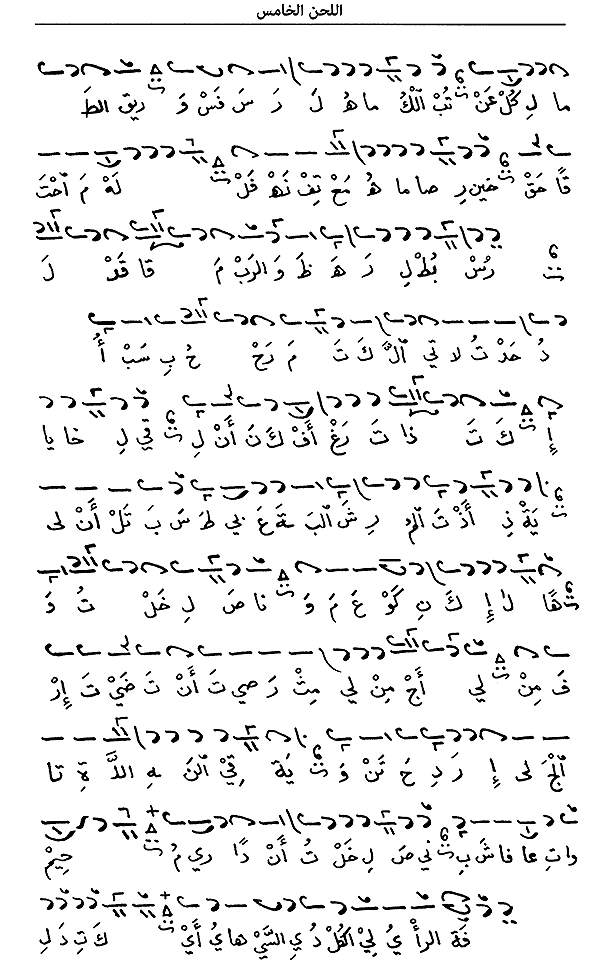 اللحن الخامس
ما لِ كُلْ عَنْ ث تُبْ الْكُ ما هُ لَ رَ سَ فَسْ وَ ث ريق الطَ
قا حَقْ ث خين رِ صا ما هُ مَعْ تِفْ نَهْ فَلْ ث لَهْ مَ احْتَ
ث رُسْ بُطْ لِ رَ هَ ظَ وَ الرَبْ مَ قا قَدْ لَ
دُ حَدْ تُ لا تي الْ كَ تَ مَ رَحْ حُ بِ سَبْ أُ
إِ ث كَ تَ ذا تَ رَغْ أَفْ كَ نَ أَنْ لِ ث قي لِ خا يا
ث يَةْ ذِ أَذْ تَ المُ رِ شَ البَ ةَ عَ بي طَ سَ بَ تَلْ أَنْ لى
ث ها لا إِ كَ نِ كَوْ عَ مَ وَ ث نا صَ لِ خَلْ تُ دَ
فَ مِنْ ث لي أَجْ مِنْ لي مِثْ رَ صي تَ أَنْ تَ ضَيْ تَ إِرْ
الْجَ لى إِ رَ دِ حَ تَنْ وَ ث يَةْ قِيْ النَ هِ اللَّ ةِ تا
واتِ عا فا شَ بِ ث ني صَ لِ خَلْ تُ أَنْ دًا ري مُ ث حِيْمْ
فَةْ الرأْ يُ لِيْ الكُلْ دُ يِ السَيْ ها يُ أَيْ ث كَ تِ دَ لِ